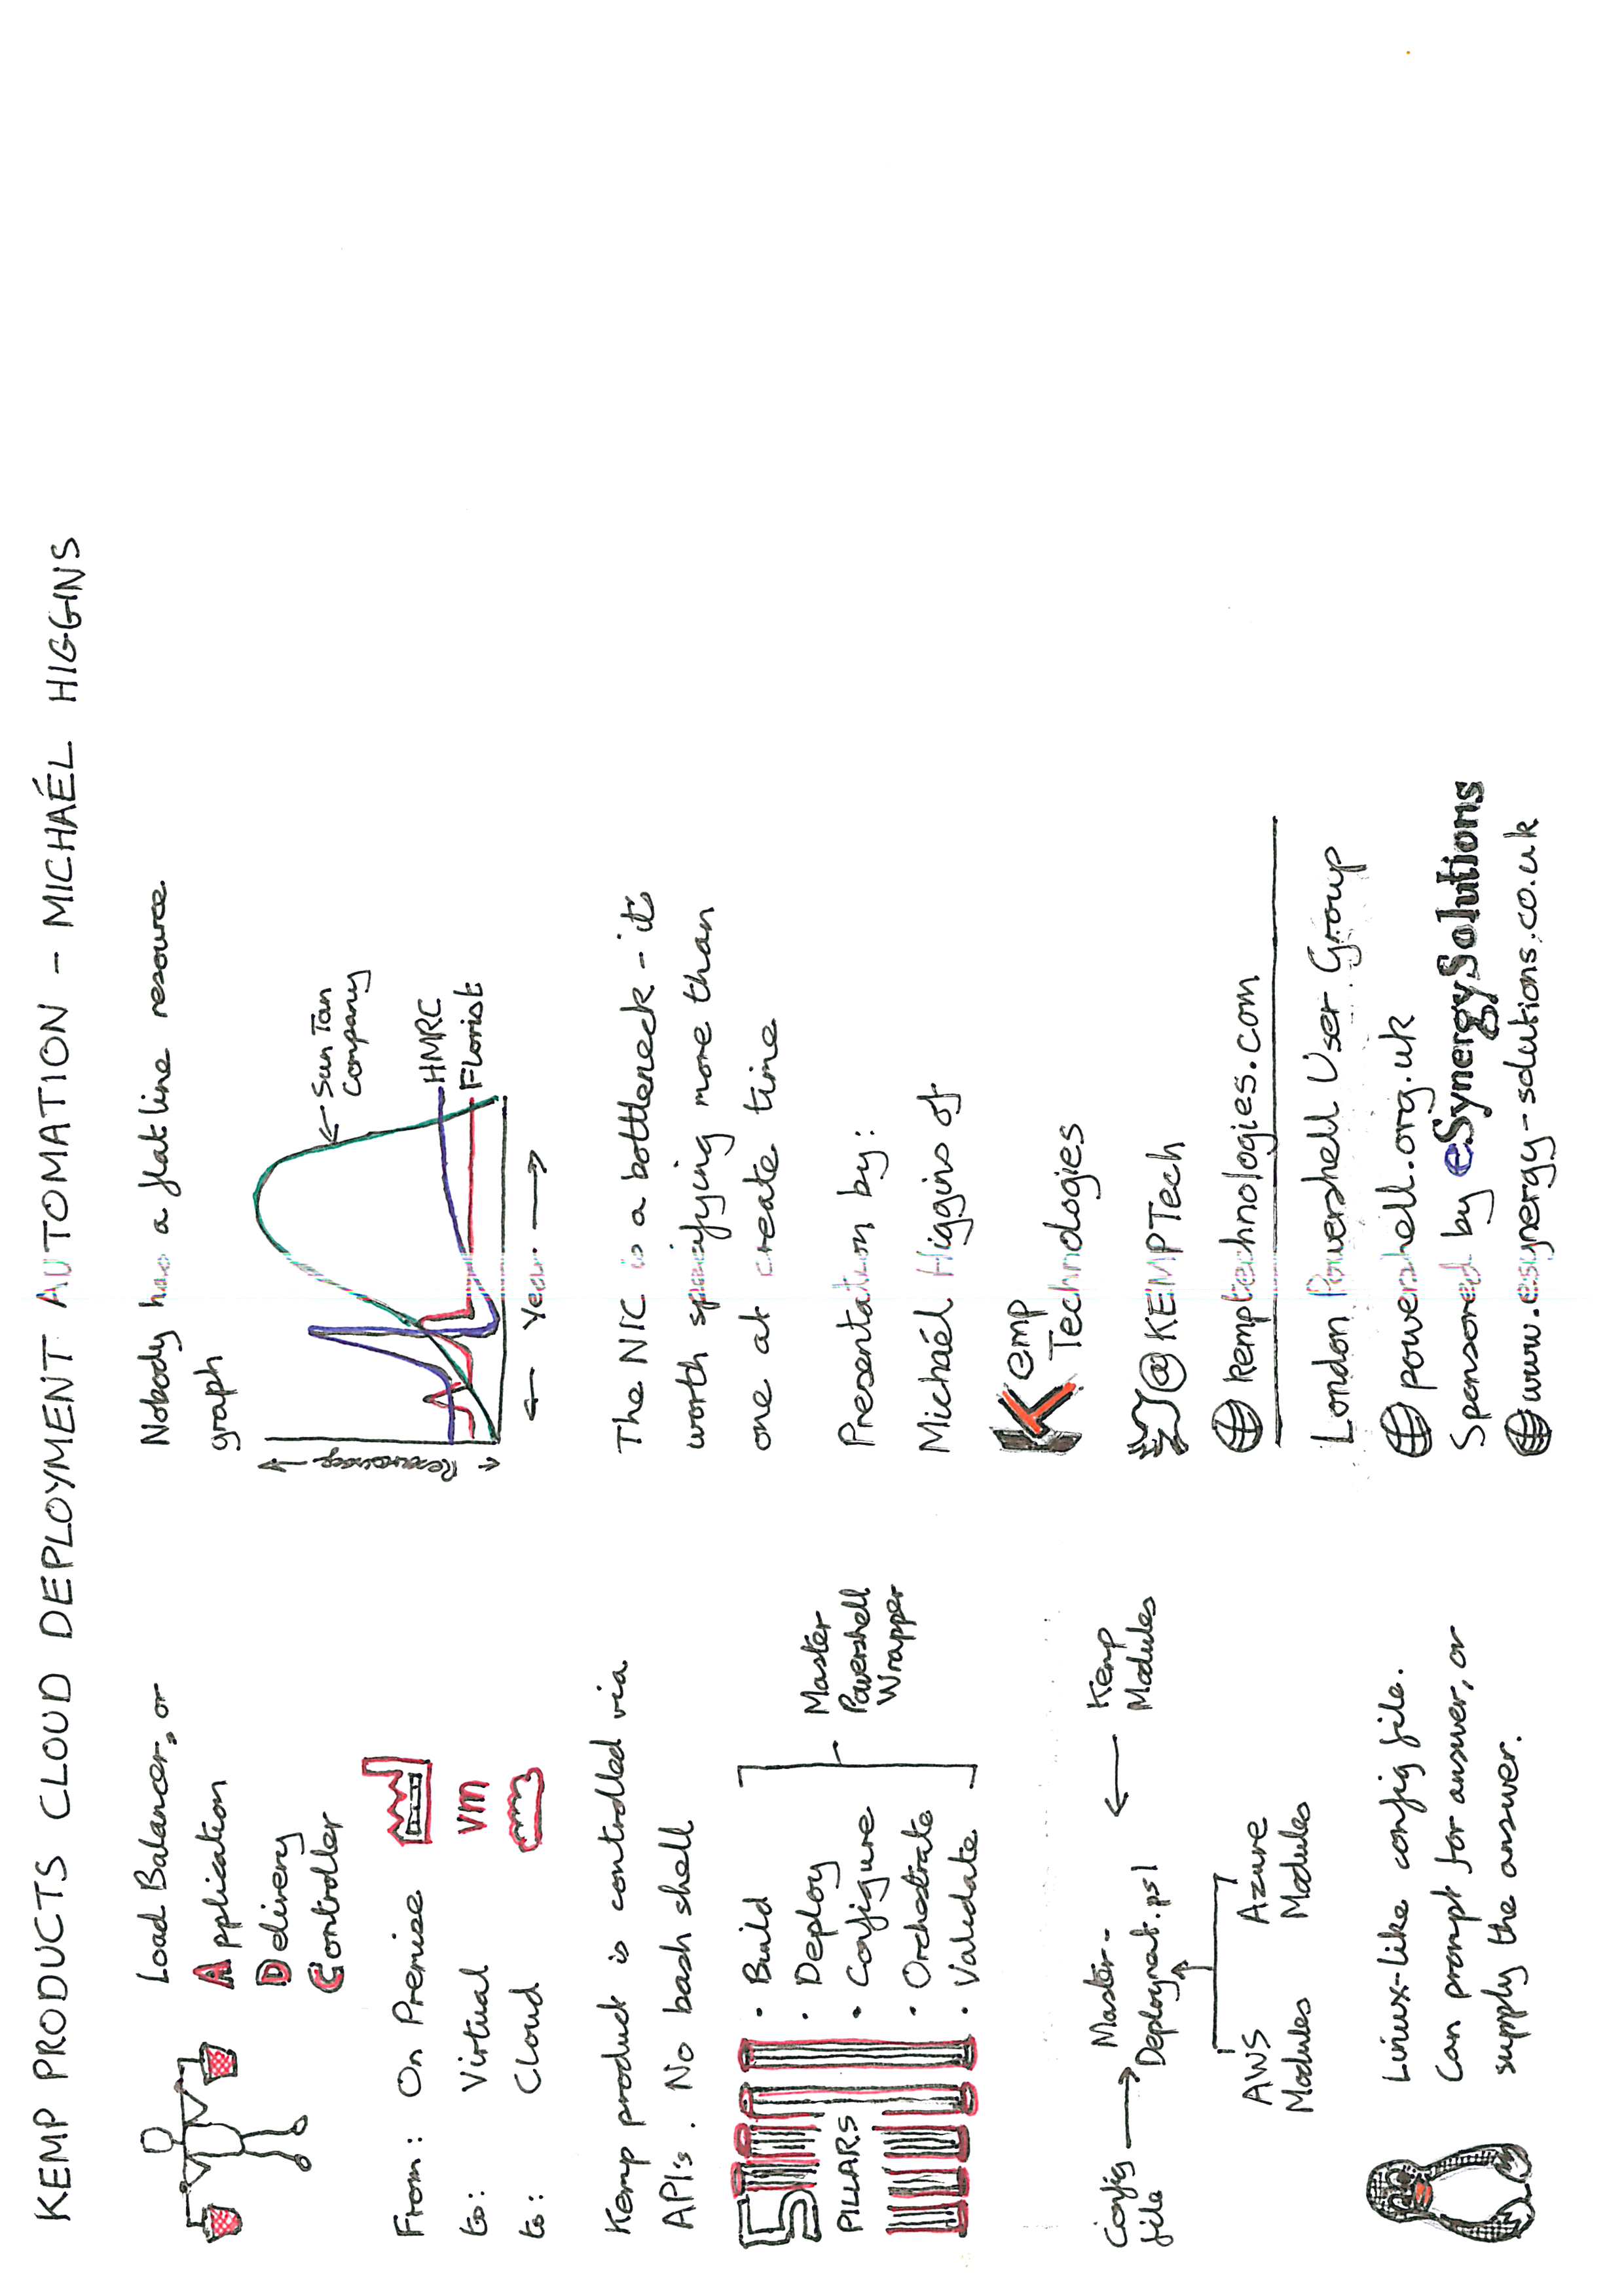 KEMP PRODUCTS CLOUD DEPLOYMENT AUTOMATION - MICHAÉL HIGGINS
Load Balancer, or
Application
Delivery
Controller
From: On Premise
to: Virtual VM
to: Cloud
Kemp product is controlled via
API's. No bash shell
5
PILLARS
· Build
· Deploy
· Configure
· Orchestrate
· Validate
Master
Powershell
Wrapper
Config
file
Master-
Deployment.ps1
Kemp
Modules
AWS
Modules
Azure
Modules
Linux-like config file.
Can prompt for answer, or
supply the answer.
Nobody has a flat line resource
graph
Sun Tan
Company
HMRC
Florist
Year
The NIC is a bottleneck - it's
worth specifying more than
one at create time
Presentation by:
Michaél Higgins of
Kemp
Technologies
@KEMPTech
kemptechnologies.com
London Powershell User Group
powershell.org.uk
Sponsored by eSynergySolutions
www.esynergy-solutions.co.uk